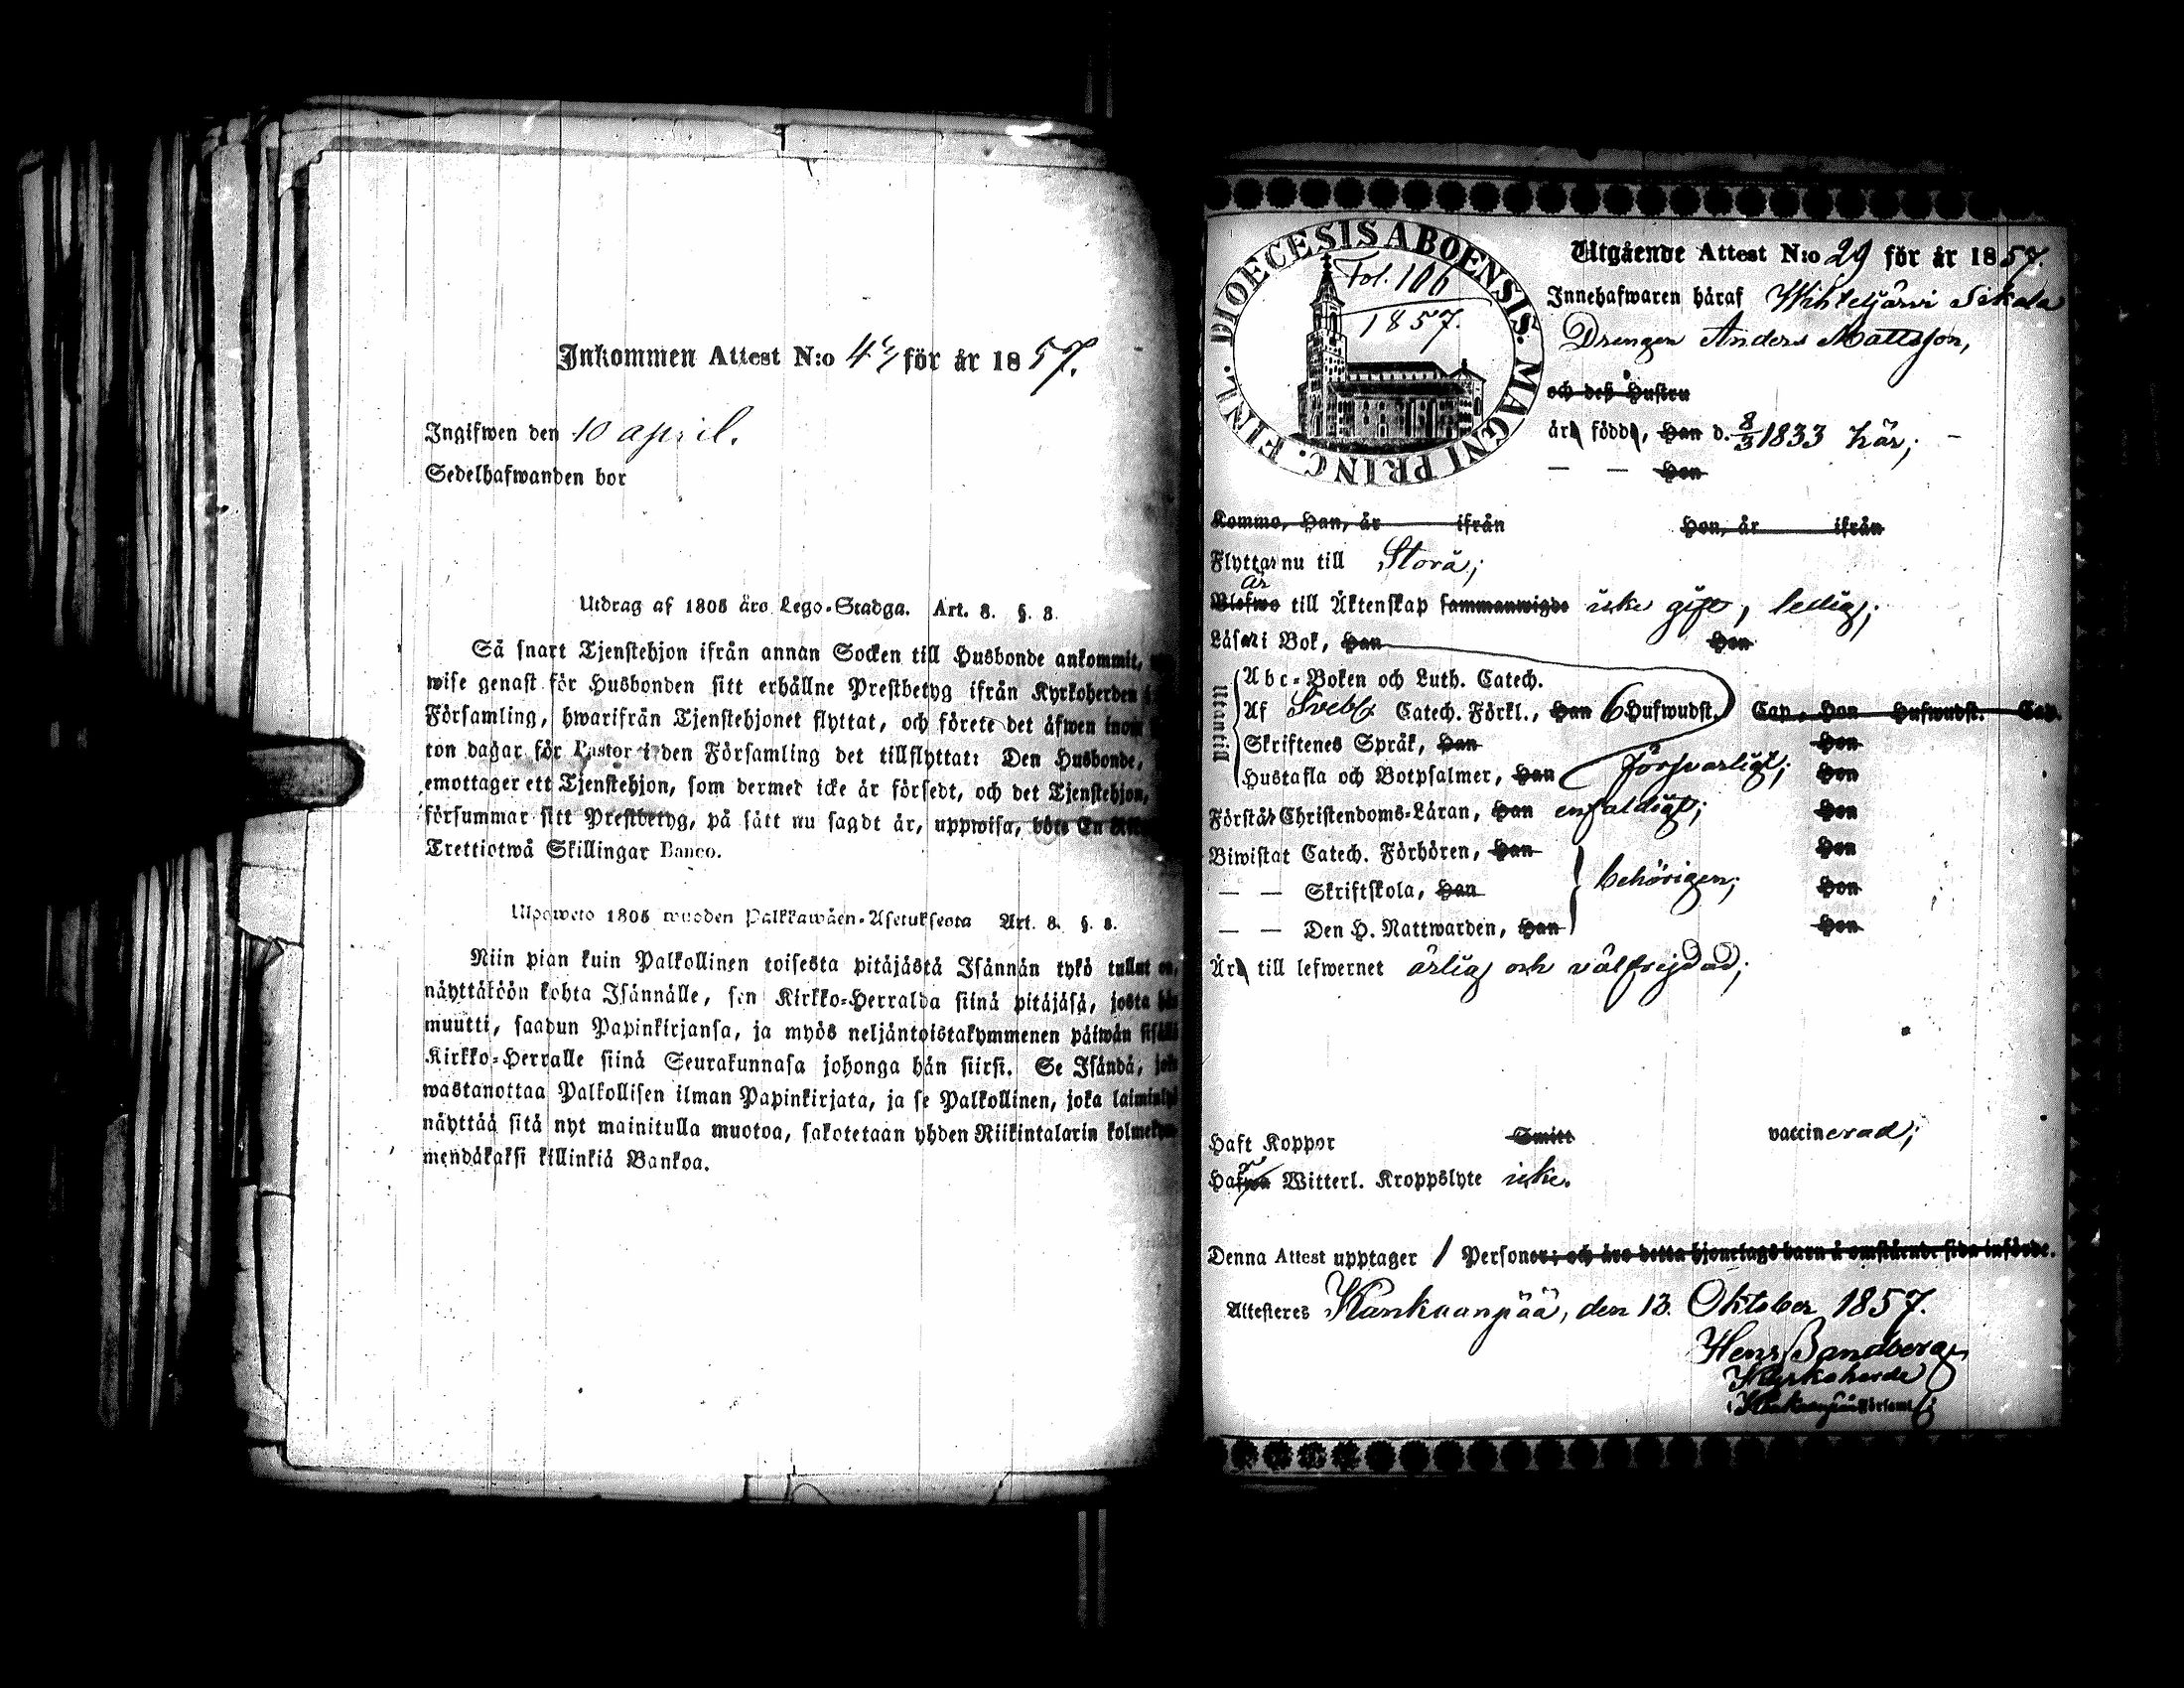 Inkommen Attest N:o för år 1857.
Ingifwen den 10 april.
Sedelhafwanden bor
Utdrag af 1805 års Lego-Stadga. Art. 8. §. 8.
Så snart Tjenstehjon ifrån annan Socken till Husbonde ankommit,
wise genast för Husbonden sitt erhållne Prestbetyg ifrån Kyrkoherden i
Församling, hwarifrån Tjenstehjonet flyttat, och förete det äfwen inom
ton dagar för Pastor i den Församling det tillflyttat: Den Husbonde,
emottager ett Tjenstehjon, som dermed icke är försedt, och det Tjenstehjon,
försummar sitt Prestbetyg, på sätt nu sagdt är, uppwisa, böte En
Trettiotwå Skillingar Banco.
Ulosweto 1805 wuoden Palkkawäen-Asetuksesta Art. 8. §. 8.
Niin pian kuin Palkollinen toisesta pitäjästä Isännän tykö tullut on,
näyttäköön kohta Isännälle, sen Kirkko-Herralda siinä pitäjäsä, josta hän
muutti, saadun Papinkirjansa, ja myös neljäntoistakymmenen päiwän sisällä
Kirkko-Herralle siinä Seurakunnasa johonga hän siirsi. Se Isändä, joka
wastanottaa Palkollisen ilman Papinkirjata, ja se Palkollinen, joka laiminlyö
näyttää sitä nyt mainitulla muotoa, sakotetaan yhden Riikintalarin kolmekym-
mendäkaksi killinkiä Bankoa.
DIOECESIS ABOENSIS. MAGNI PRINC. FINL.
Fol. 106
1857.
Utgående Attest N:o 29 för år 1857.
Innehafwaren häraf Wihteljärvi Sikala
Drengen Anders Mattsson,
och deß Hustru
är född, Han d. 8/3 1833 här; –
— — Hon
Kommo, Han, år ifrån Hon, år ifrån
Flyttar nu till Storå;
är
Blefwo till Äktenskap sammanwigde icke gift, ledig;
Läser i Bok, Han Hon
Utantill
Abc-Boken och Luth. Catech.
Af Sveb. Catech. Förkl., Han 6 Hufwudst. Cap., Hon Hufwudst. Cap.
Skriftenes Språk, Han Hon
Hustafla och Botpsalmer, Han försvarligt; Hon
Förstår Christendoms-Läran, Han enfaldigt; Hon
Biwistat Catech. Förhören, Han Hon
— — Skriftskola, Han behörigen; Hon
— — Den H. Nattwarden, Han Hon
Är till lefwernet ärlig och välfrejdad;
Haft Koppor Smitt vaccinerad;
Hafwa Witterl. Kroppslyte icke.
Denna Attest upptager 1 Personer; och äro detta hjonelags barn å omstående sida införde.
Attesteres Kankaanpää, den 13. Oktober 1857.
Kyrkoherde
i Kankaanpää Församl.